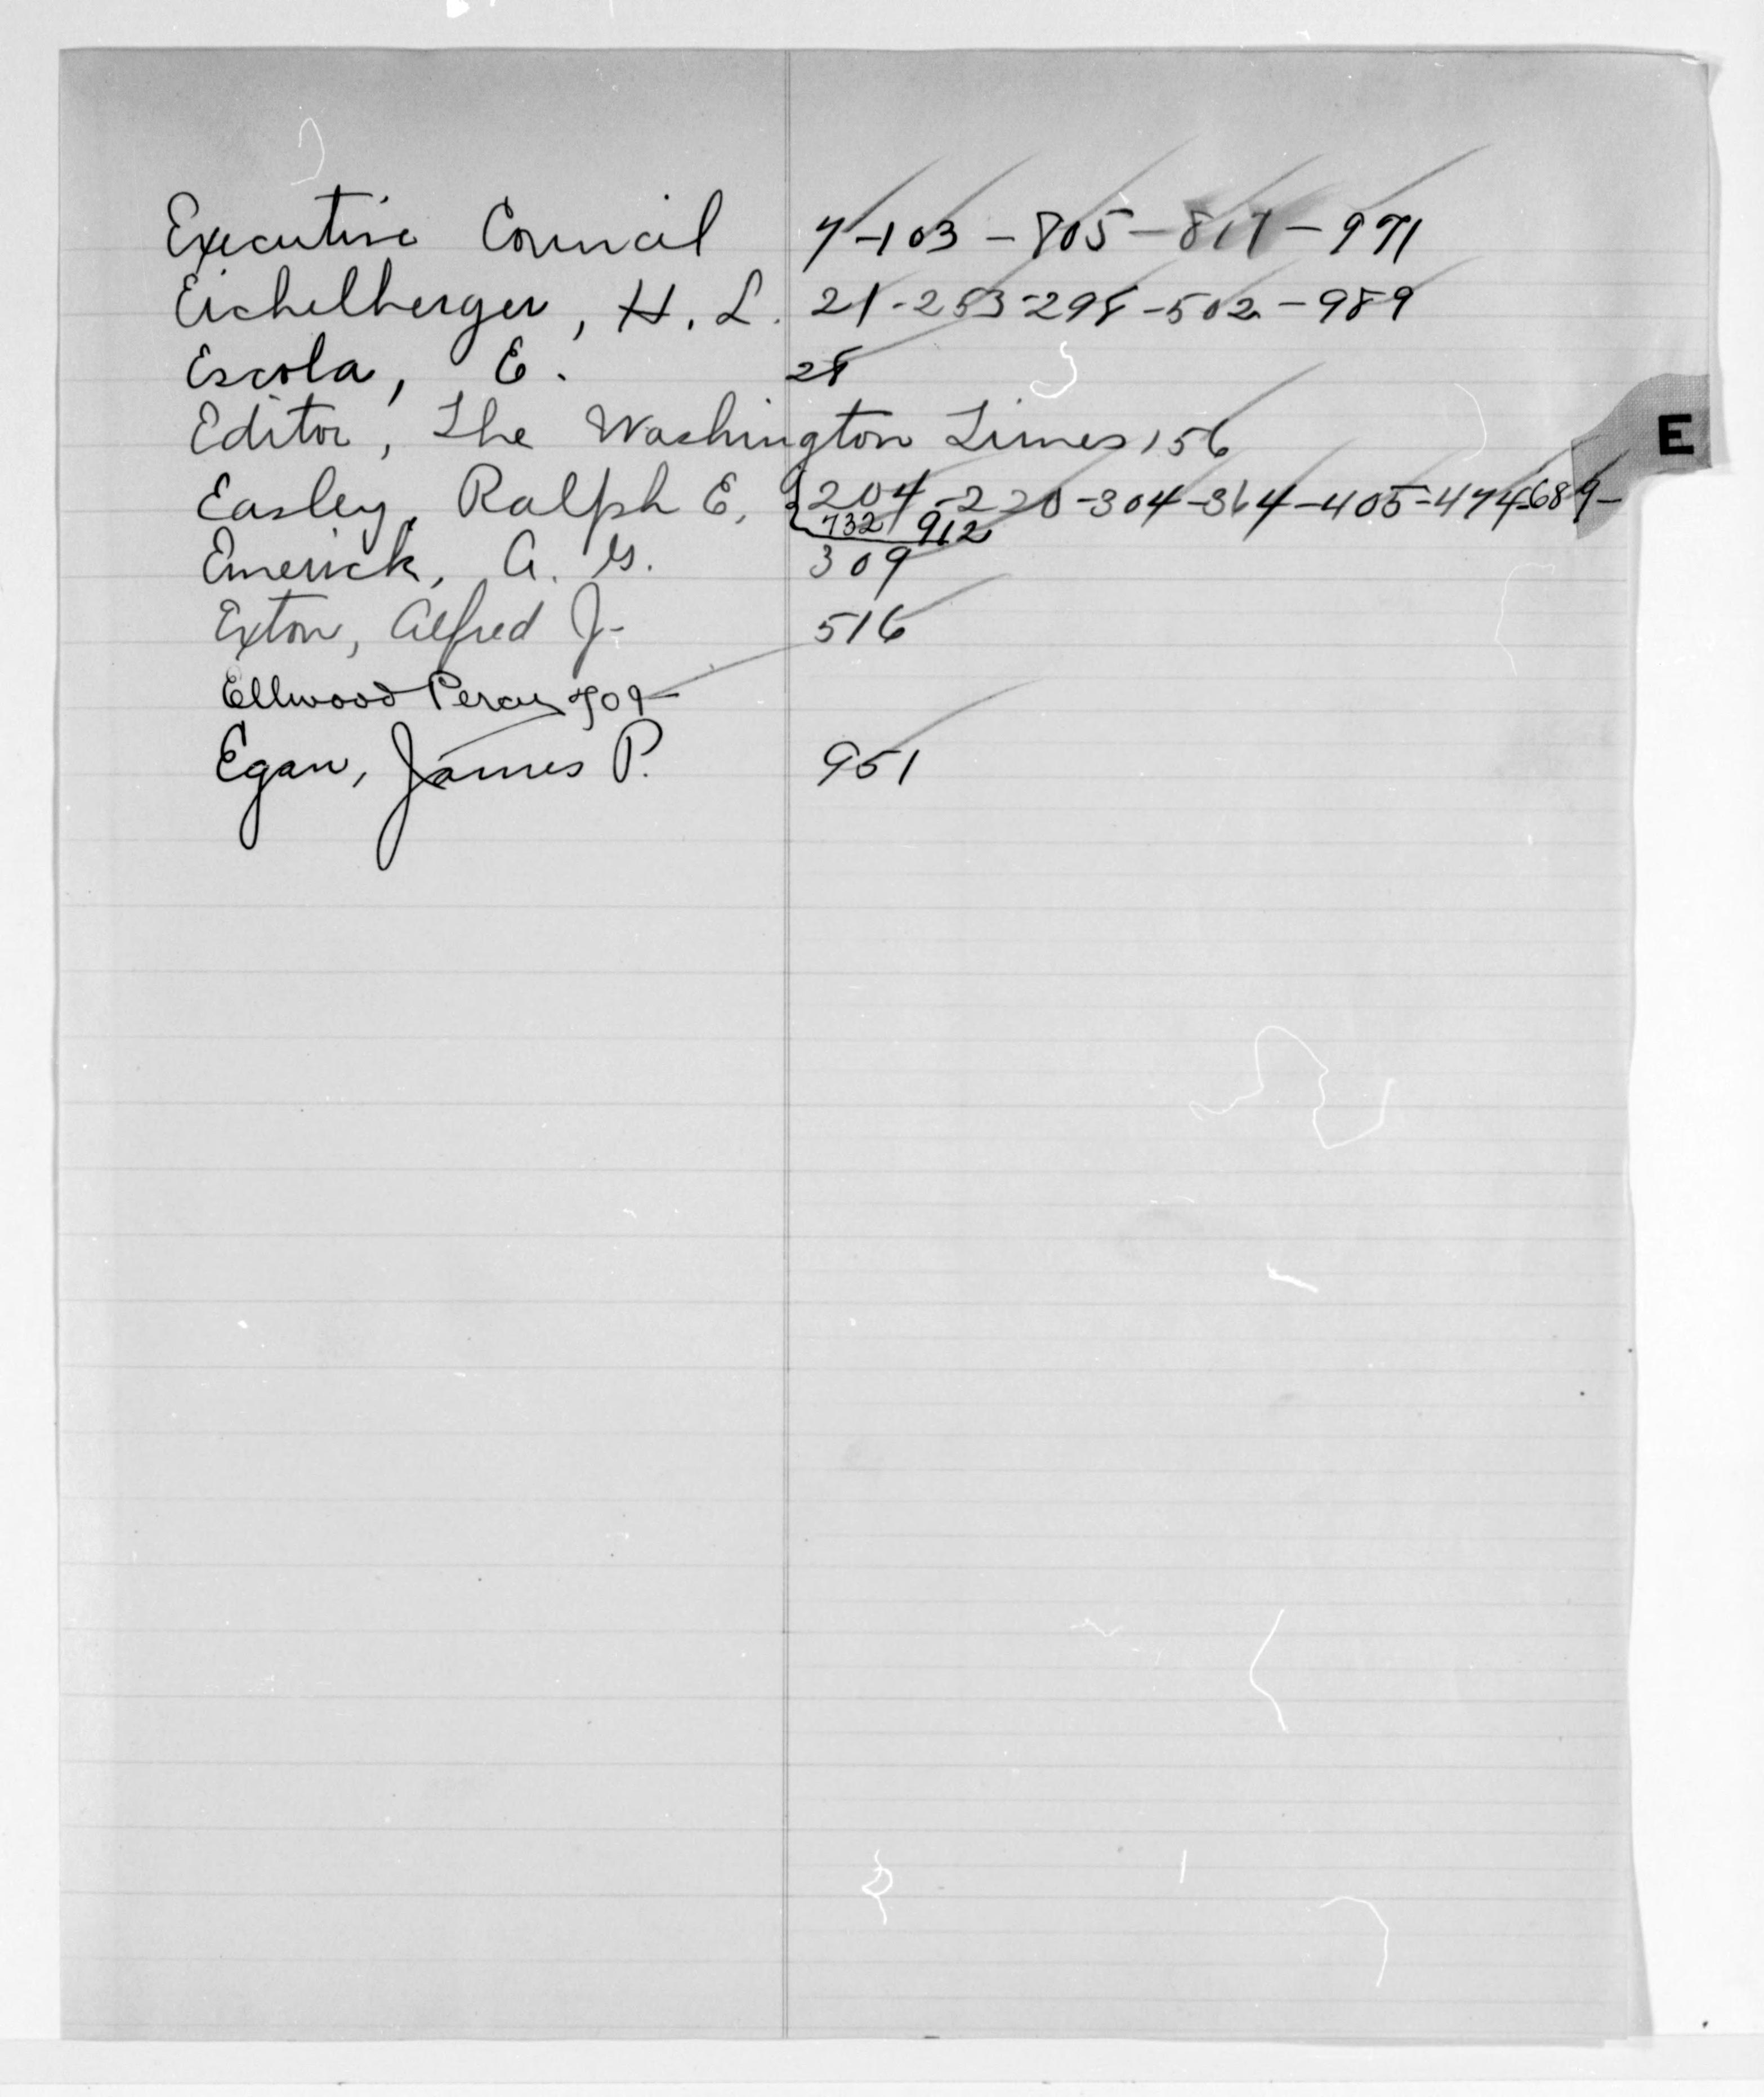 Executive Council 7-103-805-817-971
Eichelberger, H. L. 21-253-298-502-989
Escola, E. 28
Editor, The Washington Times 156
E
Easley, Ralph E. 204-220-304-364-405-474-689-
732 912
Emerick, A. G. 309
Exton, Alfred J. 516
Ellwood Percy 709-
Egan, James P. 951